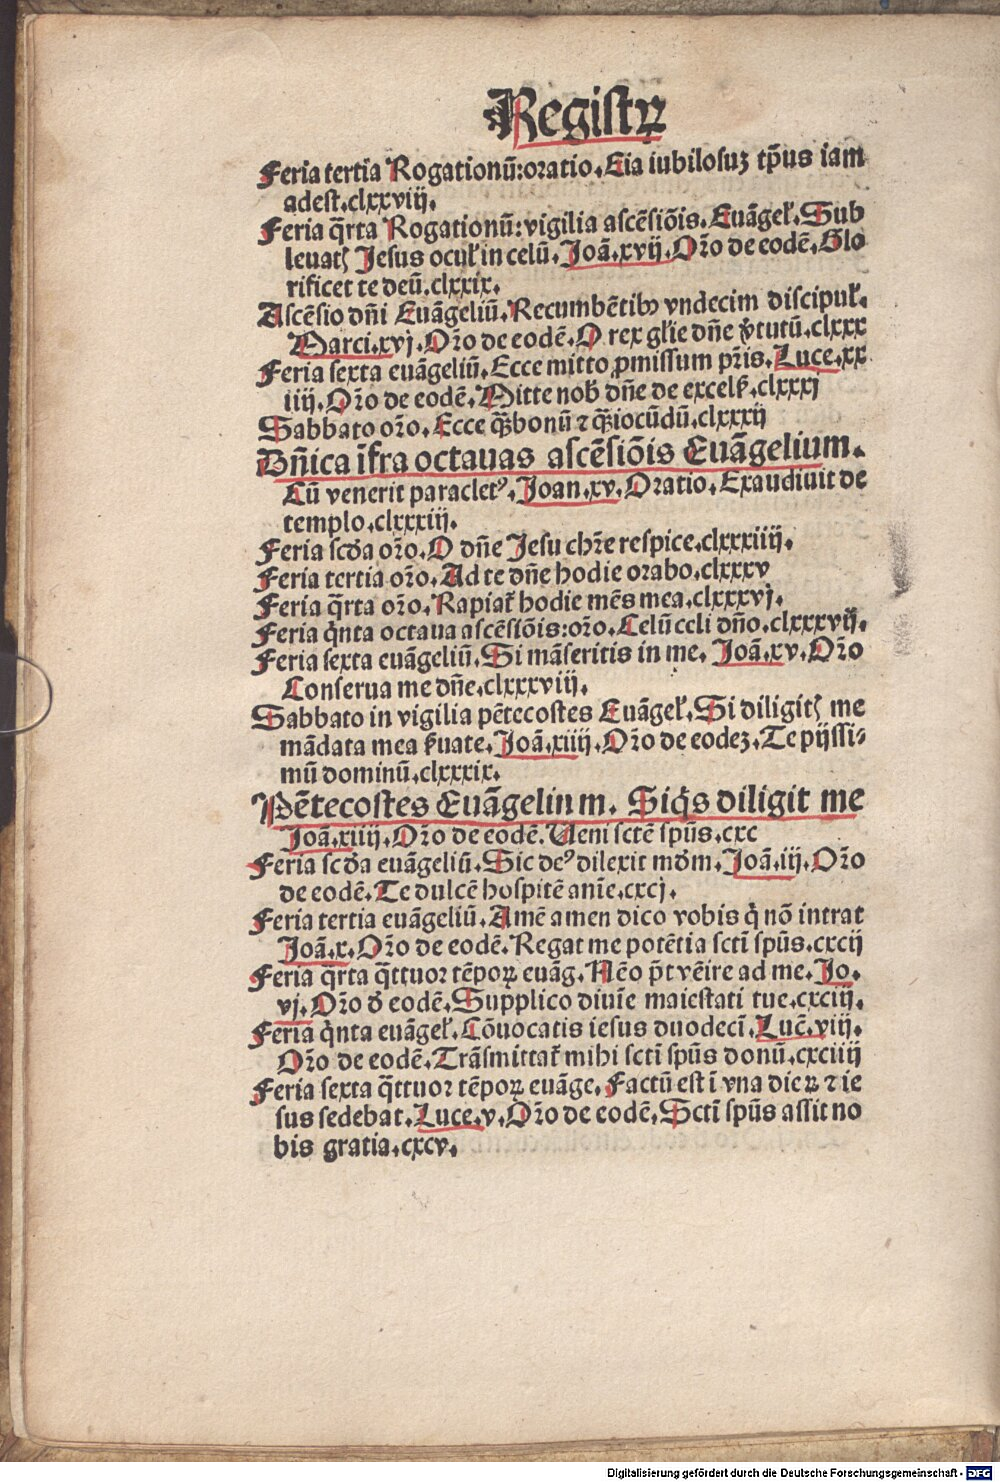 Registrꝝ
Feria tertia Rogationū:oratio.Eia iubilosuꝫ tp̄us iam
adest.clxxviij.
Feria q̄rta Rogationū:vigilia ascēsiōis.Euāgeƚ.Sub
leuatꝭ Jesus ocuƚ in celū.Joā.xvij.Or̄o de eodē.Glo
rificet te deū.clxxix.
Ascēsio dn̄i Euāgeliū.Recumbētibꝰ vndecim discipuƚ.
Marci.xvj.Or̄o de eodē.O rex gƚie dn̄e v̓tutū.clxxx
Feria sexta euāgeliū.Ecce mitto ꝓmissum pr̄is.Luce.xx
iiij.Or̄o de eodē.Mitte nob̓ dn̄e de excelẜ.clxxxj
Sabbato or̄o.Ecce qꝫ̄bonū ⁊ qꝫ̄iocūdū.clxxxij
Dn̄ica īfra octauas ascēsiōis Euāgelium.
Cū venerit paracletꝰ.Joan.xv.Oratio.Exaudiuit de
templo.clxxxiij.
Feria scd̓a or̄o.O dn̄e Jesu chr̄e respice.clxxxiiij.
Feria tertia or̄o.Ad te dn̄e hodie orabo.clxxxv
Feria q̄rta or̄o.Rapiat̄ hodie mēs mea.clxxxvj.
Feria q̇nta octaua ascēsiōis:or̄o.Celū celi dn̄o.clxxxvij.
Feria sexta euāgeliū.Si māseritis in me.Joā.xv.Or̄o
Conserua me dn̄e.clxxxviij.
Sabbato in vigilia pētecostes Euāgeƚ.Si diligitꝭ me
mādata mea ẜuate.Joā.xiiij.Or̄o de eodeꝫ.Te pijssi⸗
mū dominū.clxxxix.
Pētecostes Euāgelinm. Siq̇s diligit me
Joā.xiiij.Or̄o de eodē.Ueni sctē spūs.cxc
Feria scd̓a euāgeliū.Sic deꝰ dilexit md̓m.Joā.iij.Or̄o
de eodē.Te dulcē hospitē anīe.cxcj.
Feria tertia euāgeliū.Amē amen dico vobis q̇ nō intrat
Joā.x.Or̄o de eodē.Regat me potētia sctī spūs.cxcij
Feria q̄rta q̄ttuor tēporꝝ euāg.Nēo p̄t vēire ad me.Jo.
vj.Or̄o d̓ eodē.Supplico diuīe maiestati tue.cxciij.
Feria q̇nta euāgeƚ.Cōuocatis iesus duodecī.Lucē.viij.
Or̄o de eodē.Trāsmittat̄ mihi sctī spūs donū.cxciiij
Feria sexta q̄ttuor tēporꝝ euāge.Factū est ī vna dieꝝ ⁊ ie
sus sedebat.Luce.v.Or̄o de eodē.Sctī spūs assit no
bis gratia.cxcv.
Digitalisierung gefördert durch die Deutsche Forschungsgemeinschaft - DFG